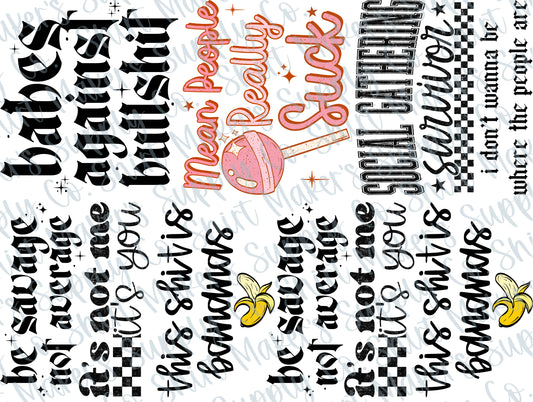 babes
against
bullshit
Mean People
Really
Suck
SOCIAL GATHERING
survivor
i don't wanna be
where the people are
be savage
not average
it's not me
it's you
this shit is
bananas
be savage
not average
it's not me
it's you
this shit is
bananas
Shirt Maker's Supply Co.